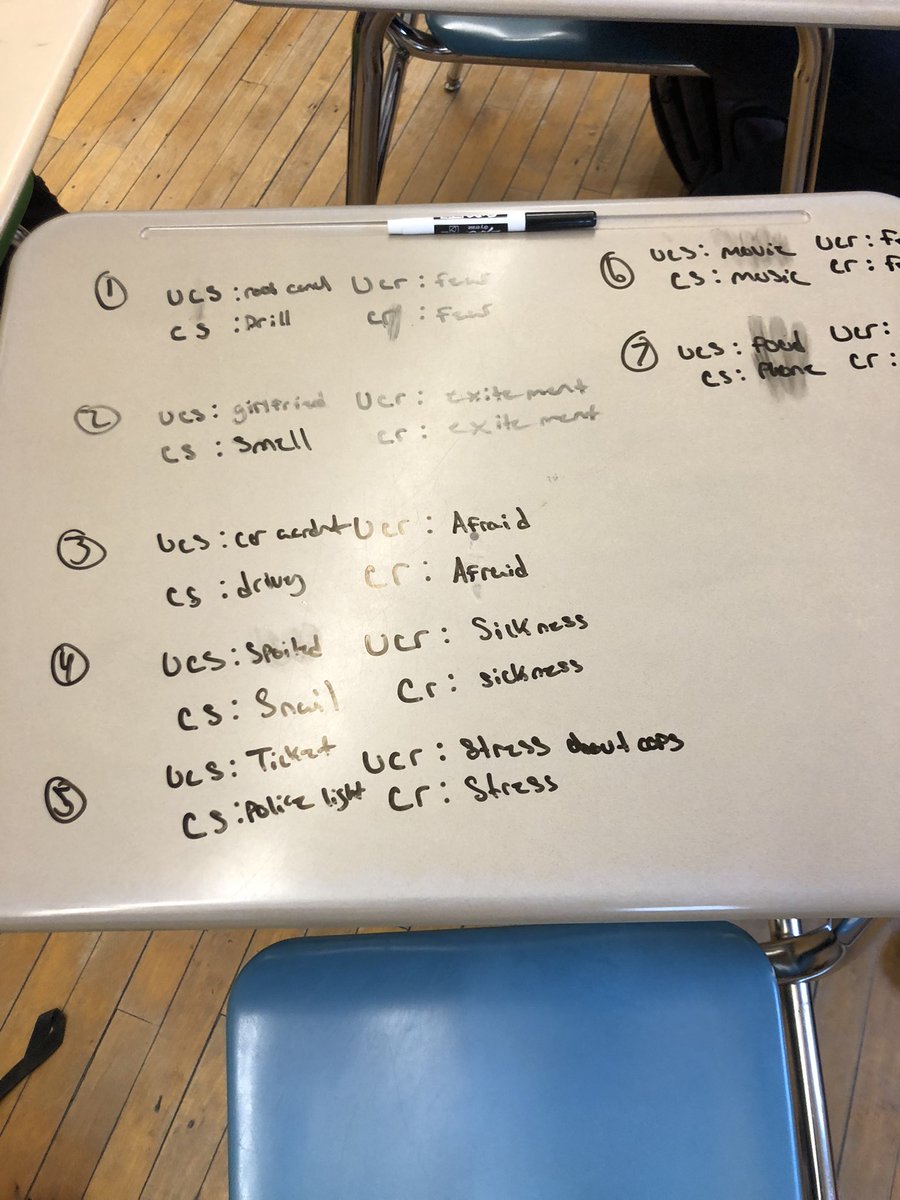 ① UCS : root canal Ucr : fear
CS : Drill cr : fear
② UCS : girlfried Ucr : exitement
CS : Smell cr : exitement
③ UCS : car Ucr : Afraid
CS : cr : Afraid
④ UCS : Spoiled Ucr : Sickness
CS : Snail Cr : sickness
⑤ UCS : Ticket Ucr : Stress about cops
CS : Police light Cr : Stress
⑥ UCS : movie Ucr :
CS : music cr :
⑦ UCS : food Ucr :
CS : Phone cr :